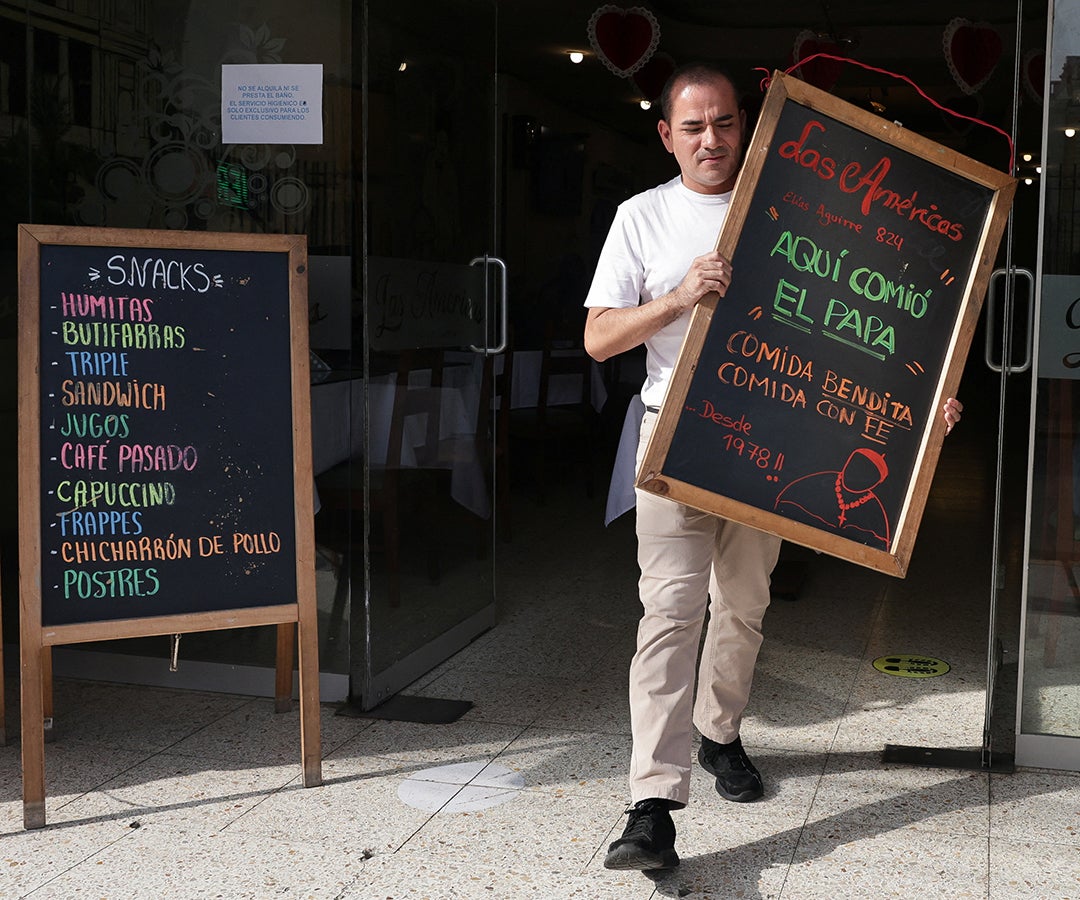 NO SE ALQUILA NI SE
PRESTA EL BAÑO.
EL SERVICIO HIGIENICO ES
SOLO EXCLUSIVO PARA LOS
CLIENTES CONSUMIENDO.
SNACKS
- HUMITAS
- BUTIFARRAS
- TRIPLE
- SANDWICH
- JUGOS
- CAFÉ PASADO
- CAPUCCINO
- FRAPPES
- CHICHARRÓN DE POLLO
- POSTRES
Las Américas
Las Américas
Elías Aguirre 824
"AQUÍ COMIÓ"
"EL PAPA"
COMIDA BENDITA
COMIDA CON FE
... Desde
1978!!